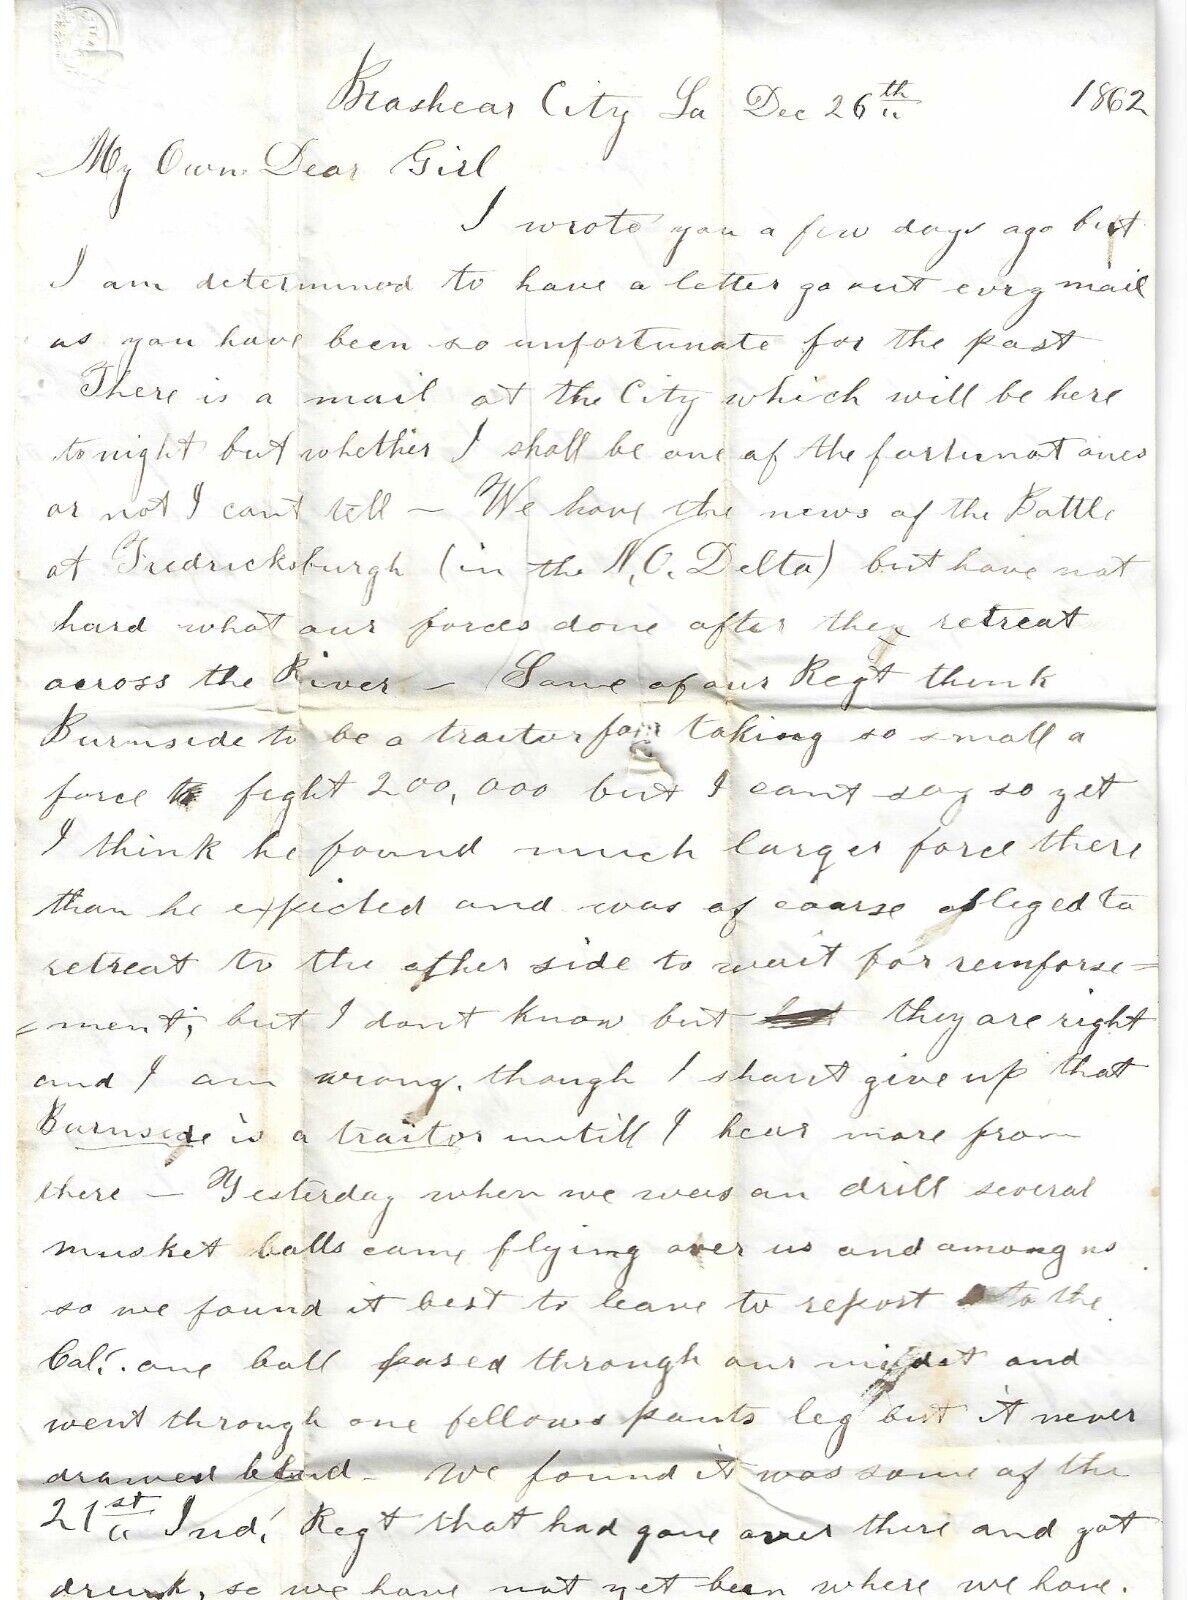 Brashear City La Dec 26th 1862
My Own Dear Girl
I wrote you a few days ago but
I am determined to have a letter go out evry mail
as you have been so unfortunate for the past
There is a mail at the City which will be here
to night but whether I shall be one of the fortunat ones
or not I cant tell – We have the news of the Battle
at Fredricksburgh (in the N.O. Delta) but have not
hard what our forces done after they retreat
across the River – Some of our Regt think
Burnside to be a traitor for taking so small a
force to fight 200,000 but I cant say so yet
I think he found much larger force there
than he expicted and was of coarse obleged to
retreat to the other side to wait for reinforse=
=ment; but I dont know but they are right
and I am wrong. though I shant give up that
Burnside is a traitor untill I hear more from
there – Yesterday when we was on drill several
musket balls came flying over us and among us
so we found it best to leave to report to the
Col. one ball pased through our midst and
went through one fellows pants leg but it never
drawed blood – We found it was some of the
21st Ind. Regt that had gone over there and got
drunk, so we have not yet been where we have.